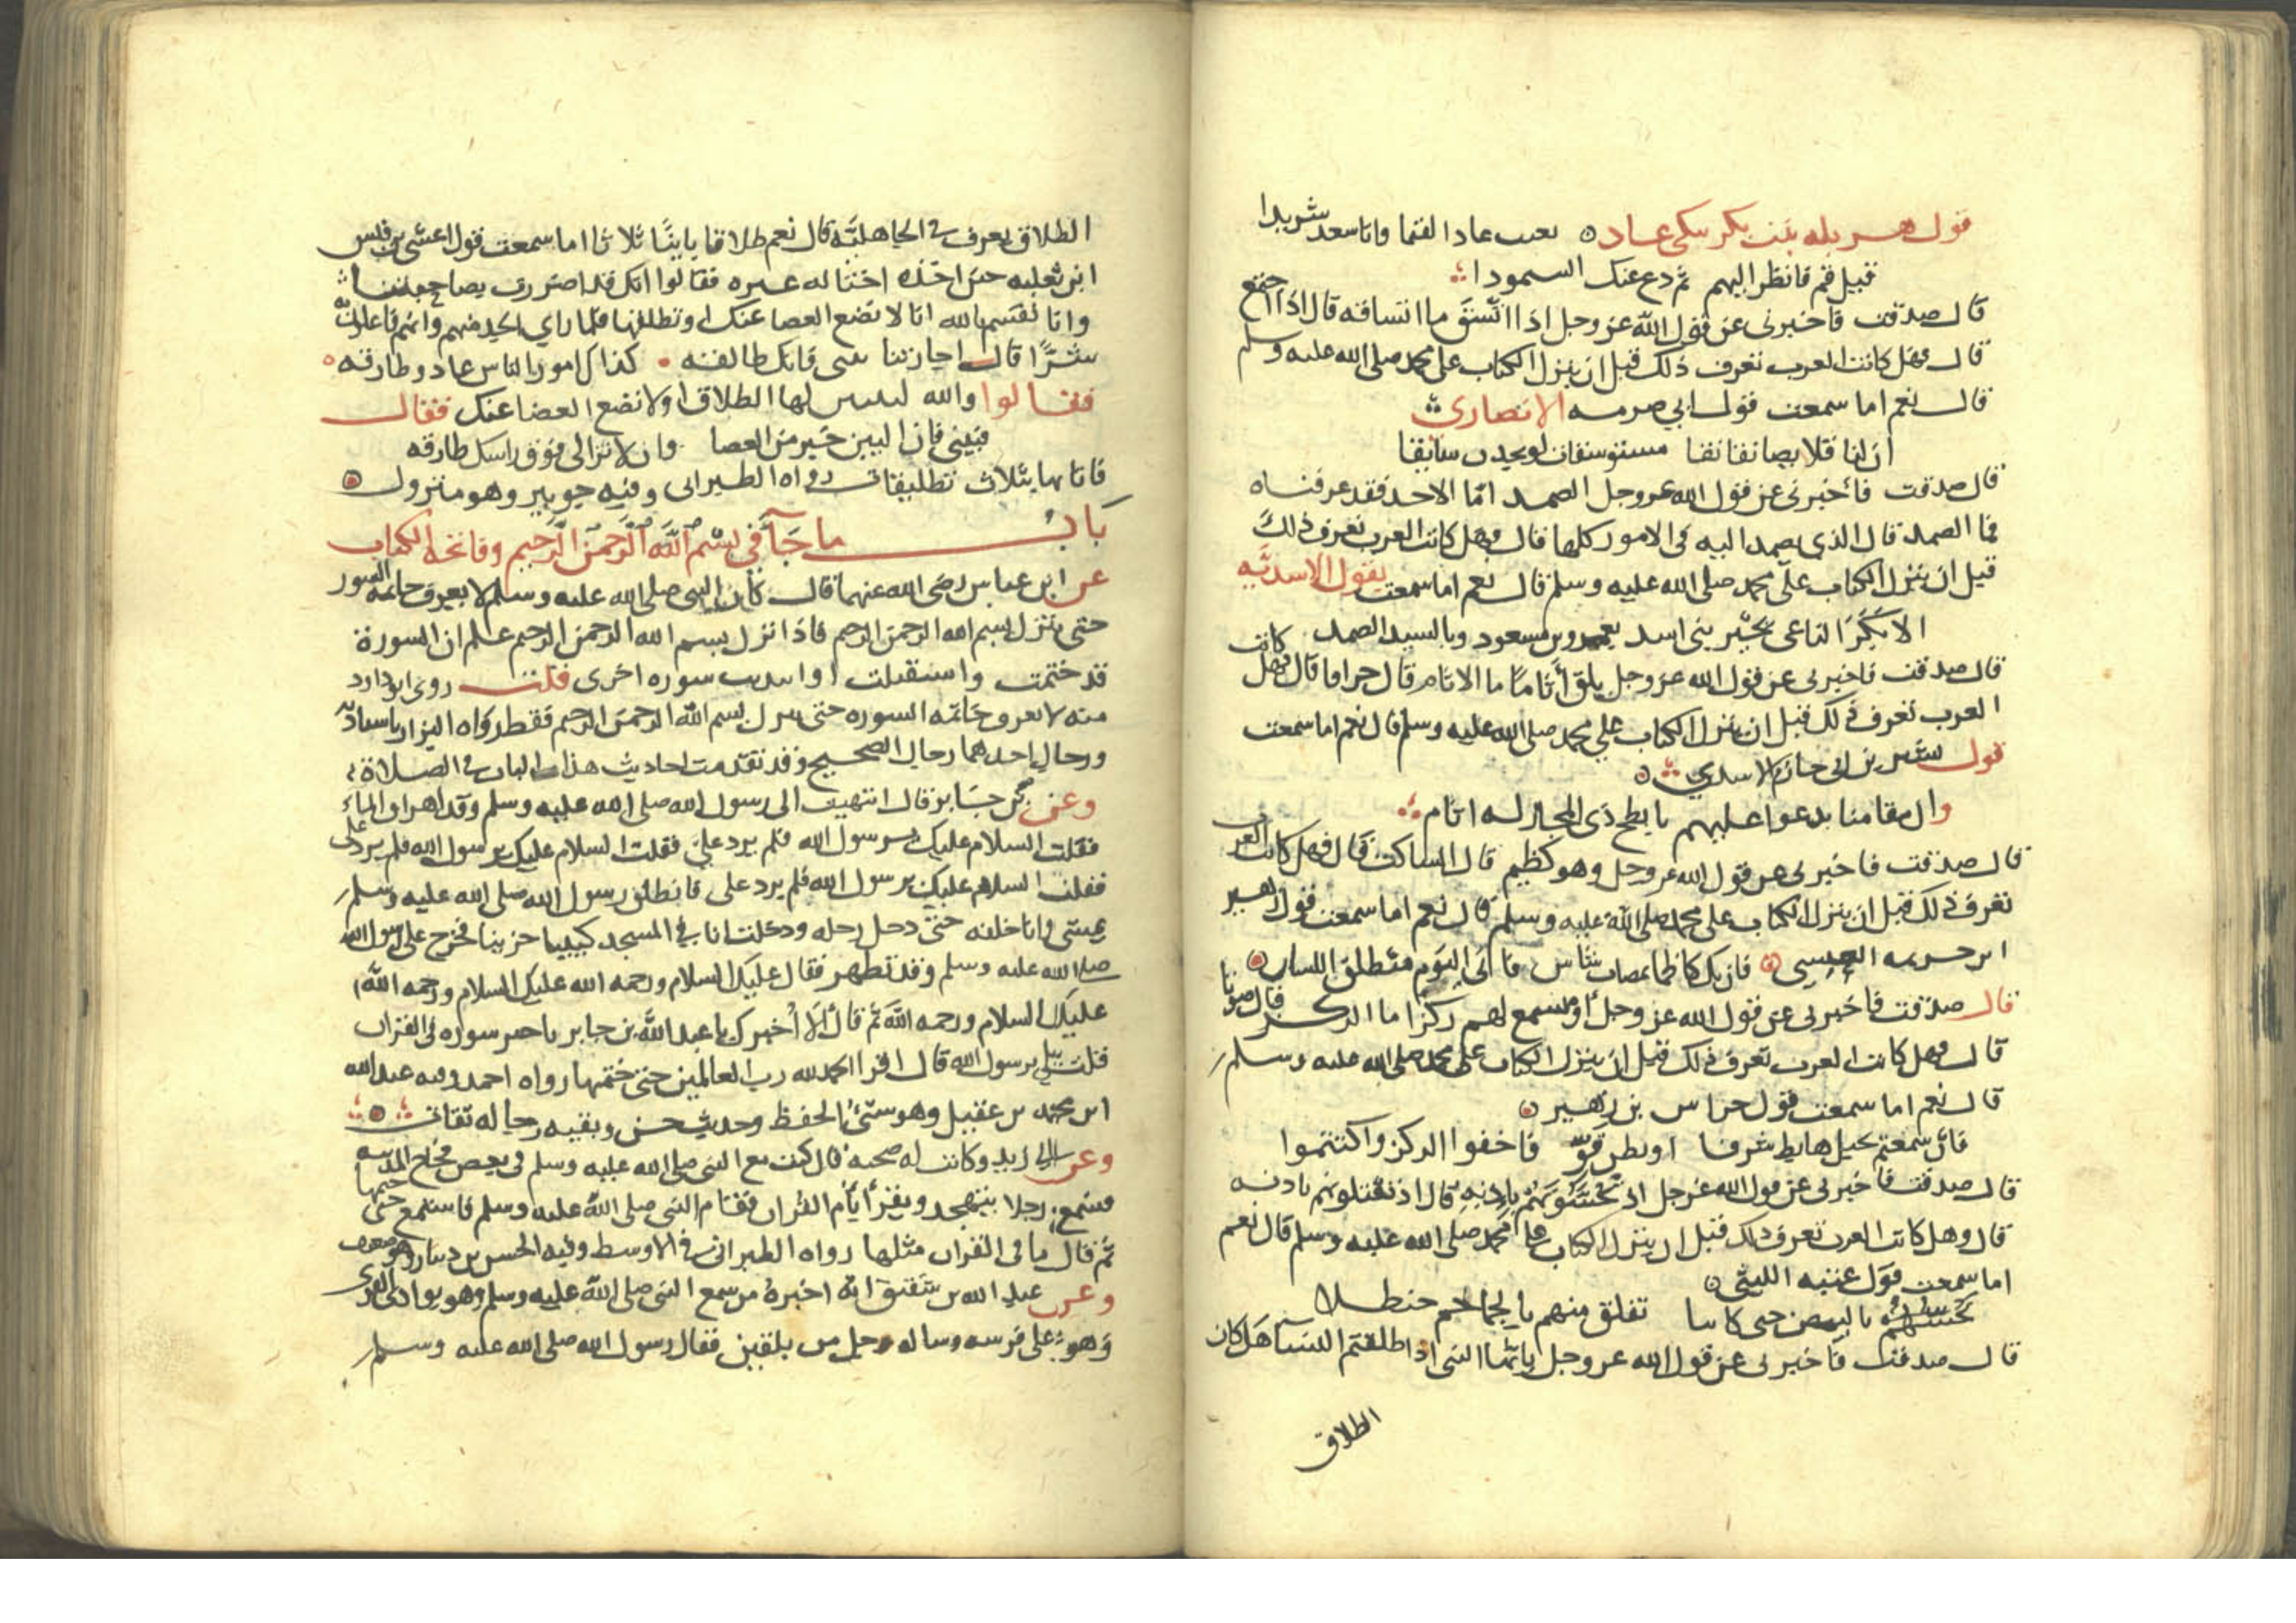 قول هزيله بنت بكر تبكي عاد بعثت عادا لقيما وانا سعد شريدا
قيل قم فانظر اليهم ثم دع عنك السمودا
قال صدقت فاخبرني عن قول الله عز وجل اذا اتسق ما اتساقه قال اذا اجتمع
قال فهل كانت العرب تعرف ذلك قبل ان ينزل الكتاب على محمد صلى الله عليه وسلم
قال نعم اما سمعت قول ابي صرمه الانصاري
ان لنا قلايصا نقانقا مستوسقات لو يجدن سايقا
قال صدقت فاخبرني عن قول الله عز وجل الصمد امّا الاحد فقد عرفناه
فما الصمد قال الذي يصمد اليه في الامور كلها قال فهل كانت العرب تعرف ذلك
قبل ان ينزل الكتاب على محمد صلى الله عليه وسلم قال نعم اما سمعت بقول الاسديه
الا بكر الناعي بخير بني اسد بعمرو بن مسعود وبالسيد الصمد
قال صدقت فاخبرني عن قول الله عز وجل يلق أثاما ما الاثام قال جزاما قال فهل كانت
العرب تعرف ذلك قبل ان ينزل الكتاب على محمد صلى الله عليه وسلم قال نعم اما سمعت
قول بشر بن ابي حازم الاسدي
وان مقامنا يدعوا عليهم بابطح ذي المجاز له اثام
قال صدقت فاخبرني عن قول الله عز وجل وهو كظيم قال الساكت قال فهل كانت العرب
تعرف ذلك قبل ان ينزل الكتاب على محمد صلى الله عليه وسلم قال نعم اما سمعت قول زهير
ابن خزيمه العبسي فان يك كاظما بمصاب شاس فاني اليوم منطلق اللسان
قال صدقت فاخبرني عن قول الله عز وجل أو تسمع لهم ركزا ما الركز قال صوتا
قال فهل كانت العرب تعرف ذلك قبل ان ينزل الكتاب على محمد صلى الله عليه وسلم
قال نعم اما سمعت قول خراش بن زهير
فان سمعتم بخيل هابط شرفا او بطن قوّ فاخفوا الركز واكتتموا
قال صدقت فاخبرني عن قول الله عز وجل اذ تحسّونهم باذنه قال اذ تقتلونهم باذنه
قال وهل كانت العرب تعرف ذلك قبل ان ينزل الكتاب على محمد صلى الله عليه وسلم قال نعم
اما سمعت قول عتبه الليثي
نحسهم بالبيض حتى كاننا تفلق منهم بالجماجم حنظلا
قال صدقت فاخبرني عن قول الله عز وجل يا أيّها النبي اذا طلقتم النسآ هل كان
الطلاق
الطلاق يعرف في الجاهليّه قال نعم طلاقا باينًا ثلاثا اما سمعت قول اعشى بن قيس
ابن ثعلبه حين اخذه اختانه عنزه فقالوا انك قد اضررت بصاحبتنا
وانا نقسم بالله انا لا نضع العصا عنك او تطلقها فلما راى الجد منهم وانهم فاعلون به
شرًّا قال اجارتنا بيني فانك طالقه كذاك امور الناس غاد وطارقه
فقالوا والله لتبينن لها الطلاق او لا نضع العصا عنك فقال
فبيني فان البين خير من العصا وان لا تزالي فوق راسك طارقه
فابانها بثلاث تطليقات رواه الطبراني وفيه جويبر وهو متروك
باب ما جآ في بسم الله الرحمن الرحيم وفاتحة الكتاب
عن ابن عباس رضي الله عنهما قال كان النبي صلى الله عليه وسلم لا يعرف خاتمه السور
حتى تنزل بسم الله الرحمن الرحيم فاذا نزل بسم الله الرحمن الرحيم علم ان السورة
قد ختمت واستقبلت او ابتديت سوره اخرى قلت روى ابو داود
منه لا يعرف خاتمه السوره حتى ينزل بسم الله الرحمن الرحيم فقط رواه البزار باسنادين
ورجال احدهما رجال الصحيح وقد تقدمت احاديث هذا الباب في الصلاة
وعن بن جابر قال انتهيت الى رسول الله صلى الله عليه وسلم وقد اهراق الماء
فقلت السلام عليك يرسول الله فلم يرد علي فقلت السلام عليك يرسول الله فلم يرد علي
فقلت السلام عليك يرسول الله فلم يرد علي فانطلق رسول الله صلى الله عليه وسلم
يمشي وانا خلفه حتى دخل رحله ودخلت انا في المسجد كييبا حزينا فخرج علي رسول الله
صلى الله عليه وسلم وقد تطهر فقال عليك السلام ورحمه الله عليك السلام ورحمه الله
عليك السلام ورحمه الله ثم قال الا اخبرك يا عبد الله بن جابر باخير سوره في القران
قلت بلى يرسول الله قال اقرا الحمد لله رب العالمين حتى ختمها رواه احمد وفيه عبد الله
ابن محمد بن عقيل وهو سيئ الحفظ وحديثه حسن وبقيه رجاله ثقات
وعن ابي زيد وكانت له صحبه قال كنت مع النبي صلى الله عليه وسلم في بعض فجاج المدينه
فسمع رجلا يتهجد ويقرأ بأم القران فقام النبي صلى الله عليه وسلم فاستمع حتى ختمها
ثم قال ما في القران مثلها رواه الطبراني في الاوسط وفيه الحسن بن دينار وهو ضعيف
وعن عبد الله بن شقيق انه اخبره من سمع النبي صلى الله عليه وسلم وهو بوادي القرى
وهو على فرسه وساله رجل من بلقين فقال رسول الله صلى الله عليه وسلم